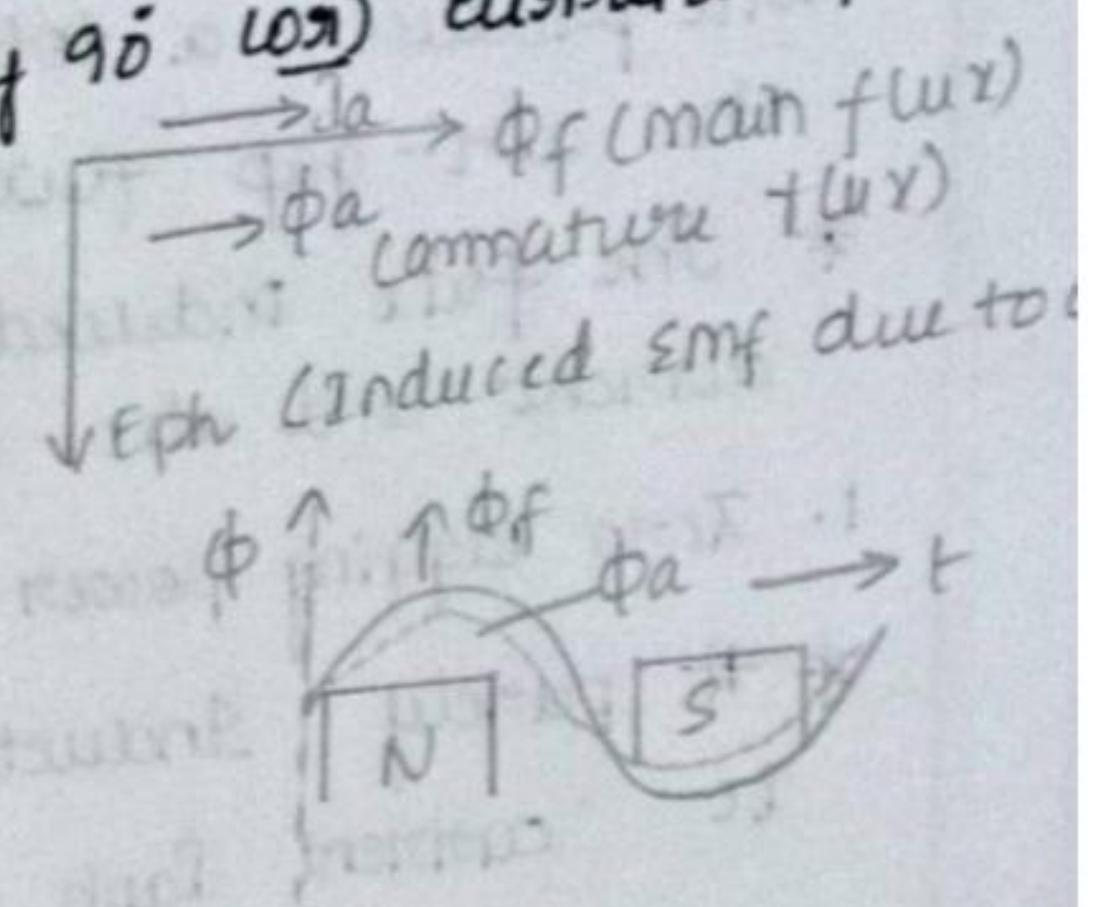 90° (or)
→ Ia
→ Φf (main flux)
→ Φa (armature flux)
Eph (Induced Emf due to
Φ ↑ ↑ Φf
Φa → t
N S